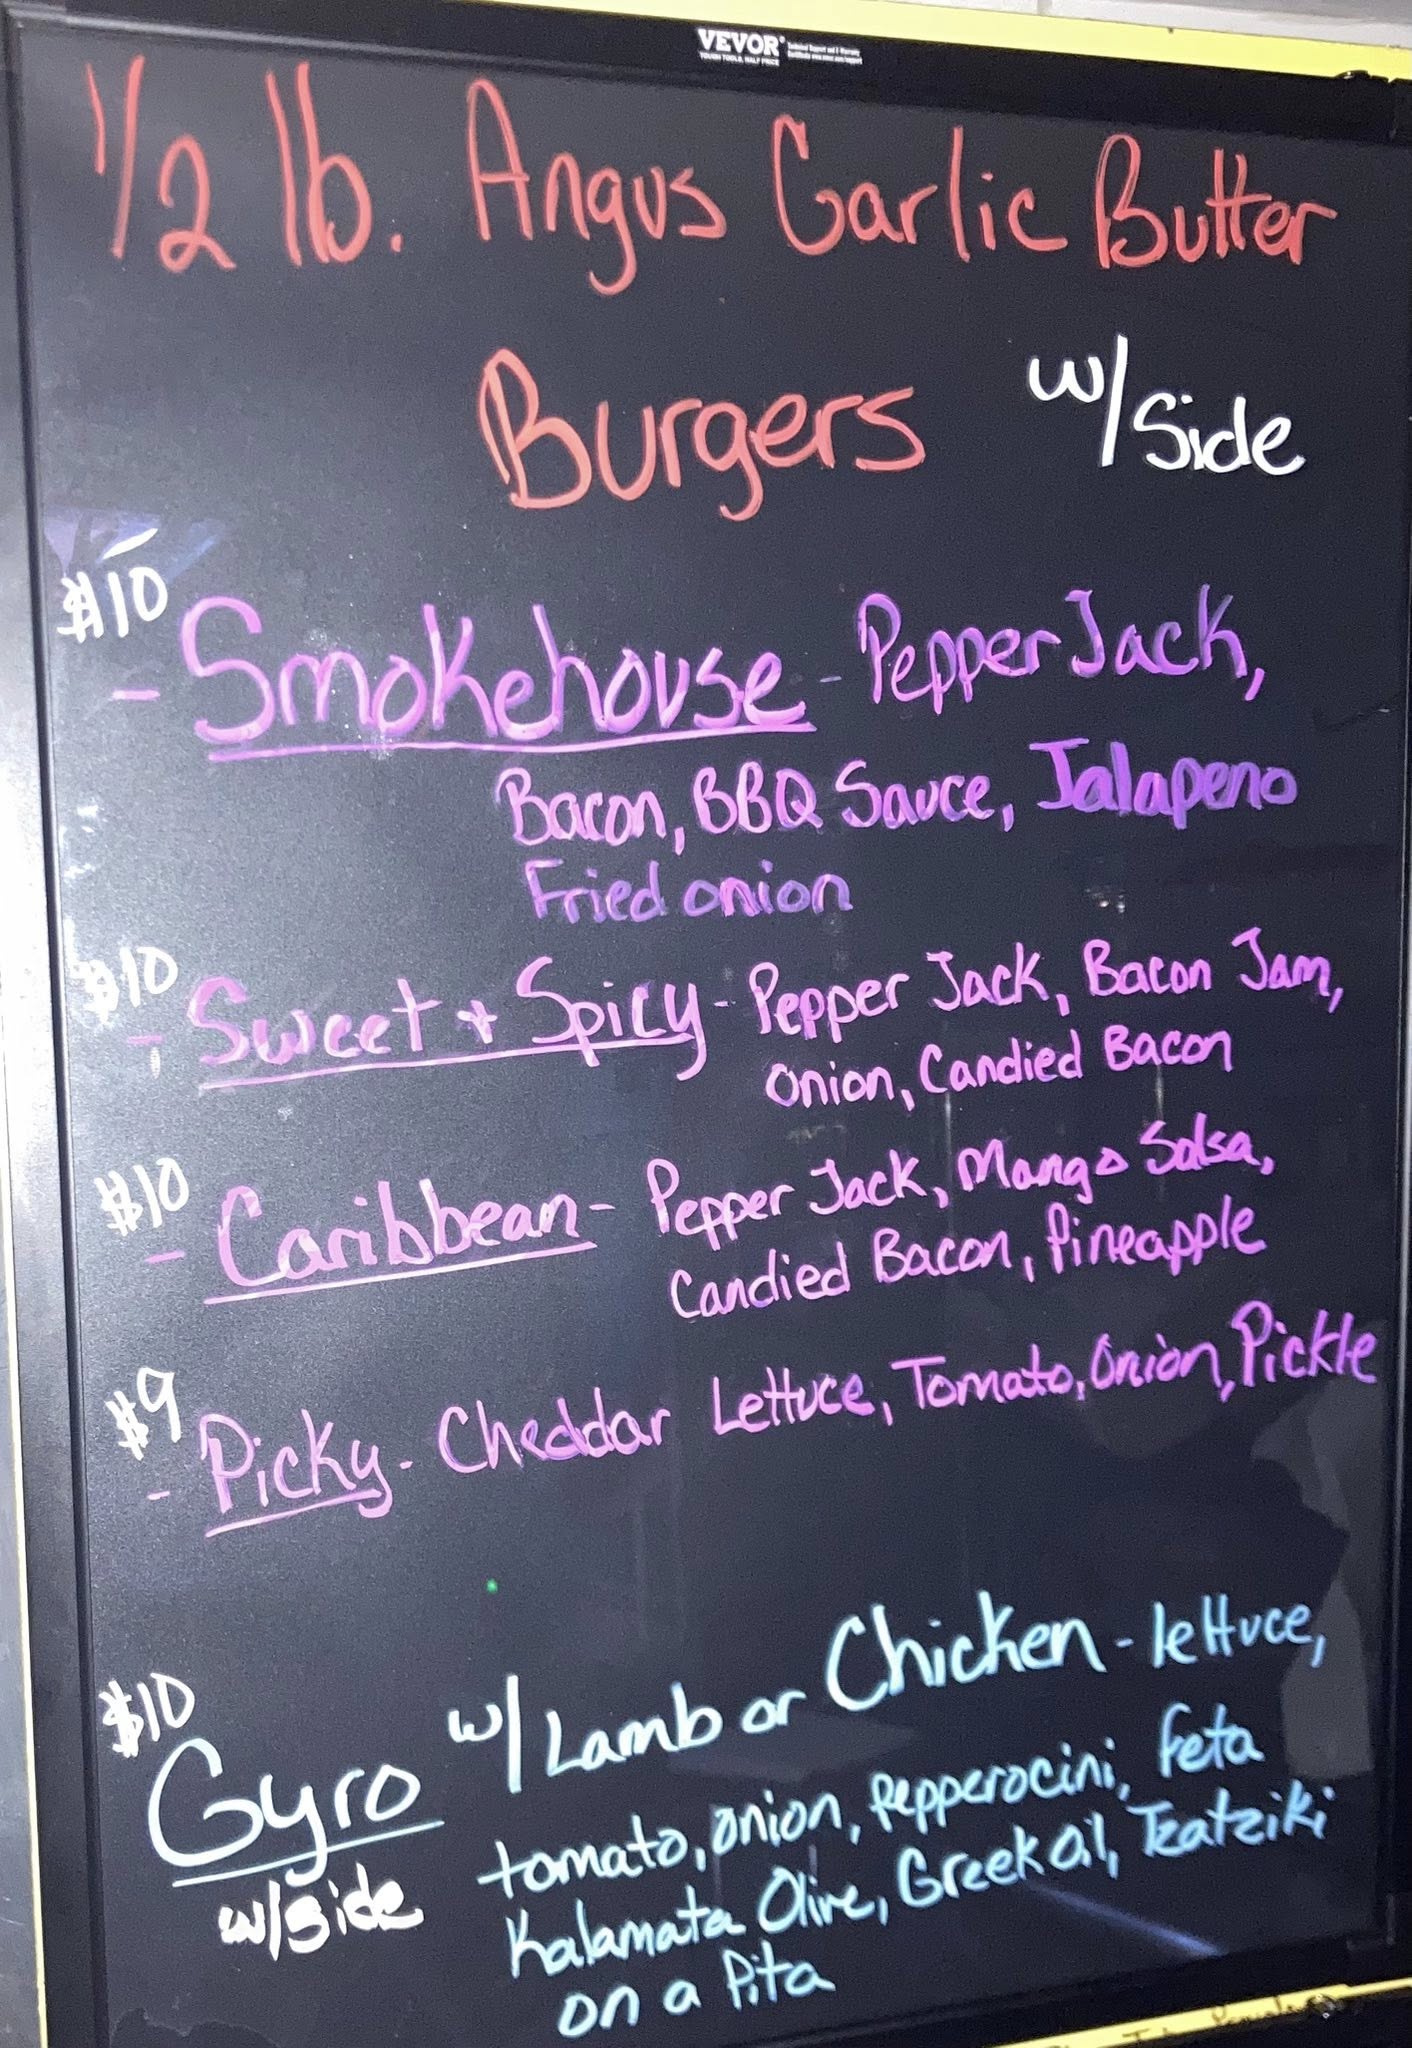 VEVOR
TOUGH TOOLS, HALF PRICE
1/2 lb. Angus Garlic Butter
Burgers w/Side
$10
- Smokehouse - Pepper Jack,
Bacon, BBQ Sauce, Jalapeno
Fried onion
$10
- Sweet + Spicy - Pepper Jack, Bacon Jam,
Onion, Candied Bacon
$10
- Caribbean - Pepper Jack, Mango Salsa,
Candied Bacon, Pineapple
$9
- Picky - Cheddar Lettuce, Tomato, Onion, Pickle
$10
Gyro w/Lamb or Chicken - lettuce,
w/side tomato, onion, pepperocini, Feta
Kalamata Olive, Greek Oil, Tzatziki
on a Pita